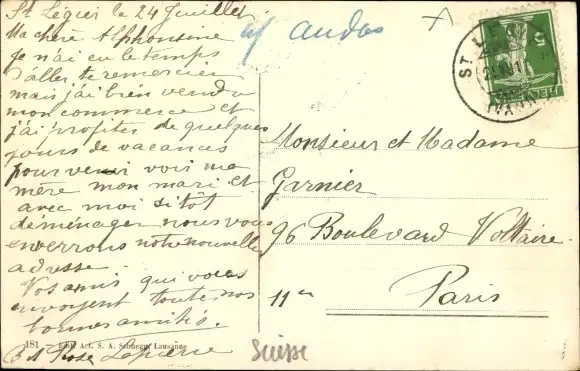 St Légier le 24 Juillet
Ma chère Alphonsine
Je n'ai eu le temps
d'aller te remercier
mais j'ai bien vendu
mon commerce et
j'ai profiter de quelques
jours de vacances
pour venir voir ma
mère mon mari est
avec moi sitôt
déménager nous vous
enverrons notre nouvelle
adresse.
Vos amis qui vous
envoyent toutes nos
bonnes amitiés.
Rose Lapierre
181 - Edit. Art. S. A. Schnegg, Lausanne
Monsieur et Madame
Garnier
96 Boulevard Voltaire
11e Paris
Suisse
5